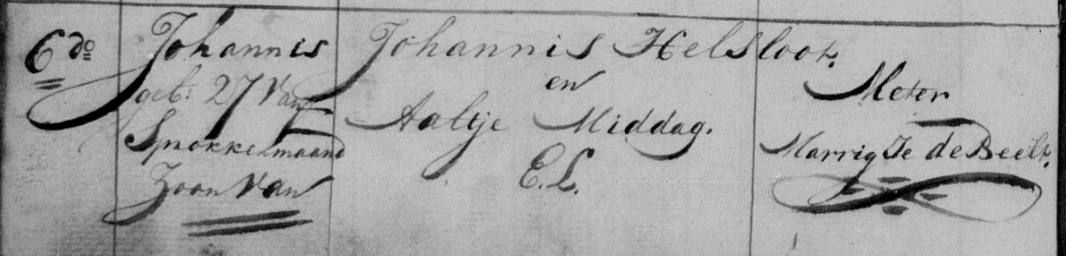 6 do
Johannis
geb: 27 van
Sprokkelmaand
Zoon van
Johannis Helsloot.
en
Aaltje Middag.
E.L.
Meter
Marrigje de Beer.